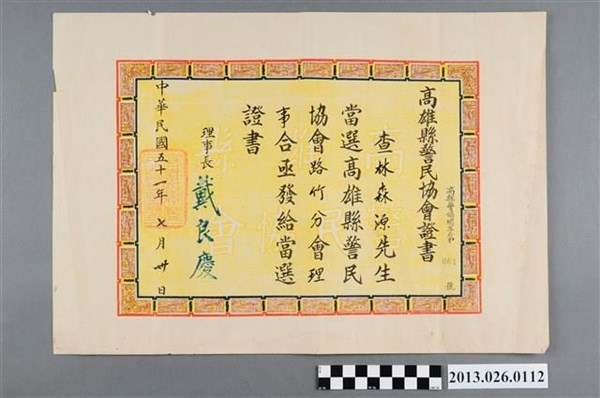 高雄縣警民協會證書
號
查林森源先生
當選高雄縣警民
協會路竹分會理
事合亟發給當選
證書
理事長 戴良慶
中華民國五十一年 七月 卅日
2013.026.0112